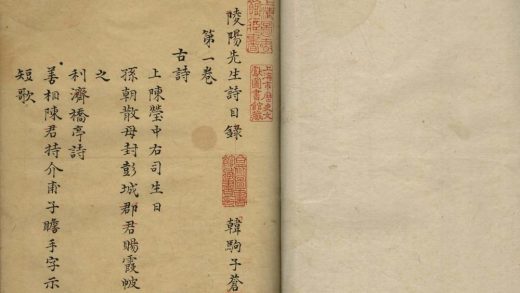 陵陽先生詩目錄
韓駒子蒼
第一卷
古詩
上陳瑩中右司生日
孫朝散母封彭城郡君賜霞帔
之
利濟橋亭詩
善相陳君持介甫子瞻手字示
短歌
上海市歷史文獻圖書館藏